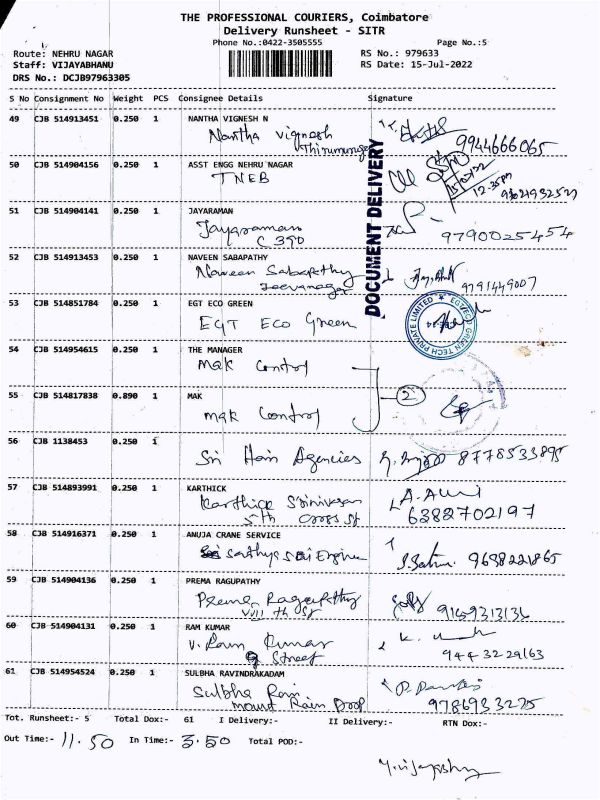 THE PROFESSIONAL COURIERS, Coimbatore
Delivery Runsheet - SITR
Phone No.:0422-3505555 Page No.:5
Route: NEHRU NAGAR RS No.: 979633
Staff: VIJAYABHANU RS Date: 15-Jul-2022
DRS No.: DCJB97963305
S No Consignment No Weight PCS Consignee Details Signature
49 CJB 514913451 0.250 1 NANTHA VIGNESH N
Nantha Vignesh
Thirumurugan 9944666065
50 CJB 514904156 0.250 1 ASST ENGG NEHRU NAGAR
TNEB 15/07/22
12.35pm
DOCUMENT DELIVERY
51 CJB 514904141 0.250 1 JAYARAMAN
Jayaraman
C 390 9790025454
52 CJB 514913453 0.250 1 NAVEEN SABAPATHY
Naveen Sabapathy
Jeevanagar 9791449007
53 CJB 514851784 0.250 1 EGT ECO GREEN
EGT ECO Green
EGT ECO GREEN TECH PRIVATE LIMITED
54 CJB 514954615 0.250 1 THE MANAGER
mak Control
55 CJB 514817838 0.890 1 MAK
mak Control 2
56 CJB 1138453 0.250 1
Sri Hari Agencies 8778533895
57 CJB 514893991 0.250 1 KARTHICK
Karthick Srinivasan
5th cross st 6382702197
58 CJB 514916371 0.250 1 ANUJA CRANE SERVICE
Sathya Sai Engine 9698221865
59 CJB 514904136 0.250 1 PREMA RAGUPATHY
Prema Ragupathy
VIII th St 9159313136
60 CJB 514904131 0.250 1 RAM KUMAR
V. Ram Kumar
Street 9443229163
61 CJB 514954524 0.250 1 SULBHA RAVINDRAKADAM
Sulbha Ram
mount Rain Proof 9786933275
Tot. Runsheet:- 5 Total Dox:- 61 I Delivery:- II Delivery:- RTN Dox:-
Out Time:- 11.50 In Time:- 3.50 Total POD:-